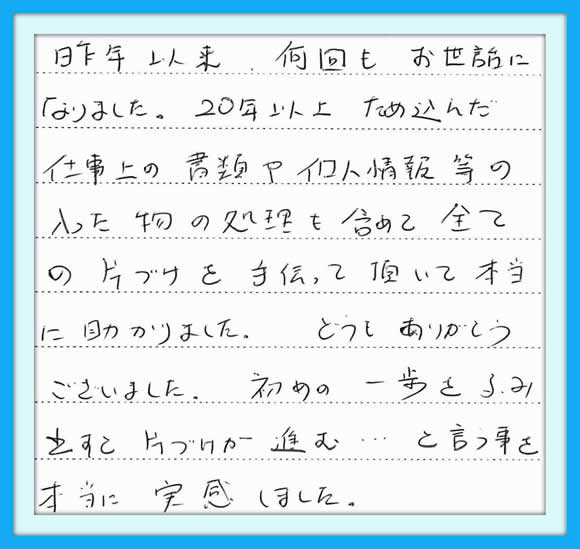 昨年以来、何回も お世話に
なりました。20年以上 ため込んだ
仕事上の 書類や 個人情報等の
入った 物の処理も含めて 全て
の 片づけを 手伝って 頂いて 本当
に 助かりました。 どうも ありがとう
ございました。 初めの 一歩を ふみ
出すと 片づけが 進む… と言う事を
本当に 実感 しました。